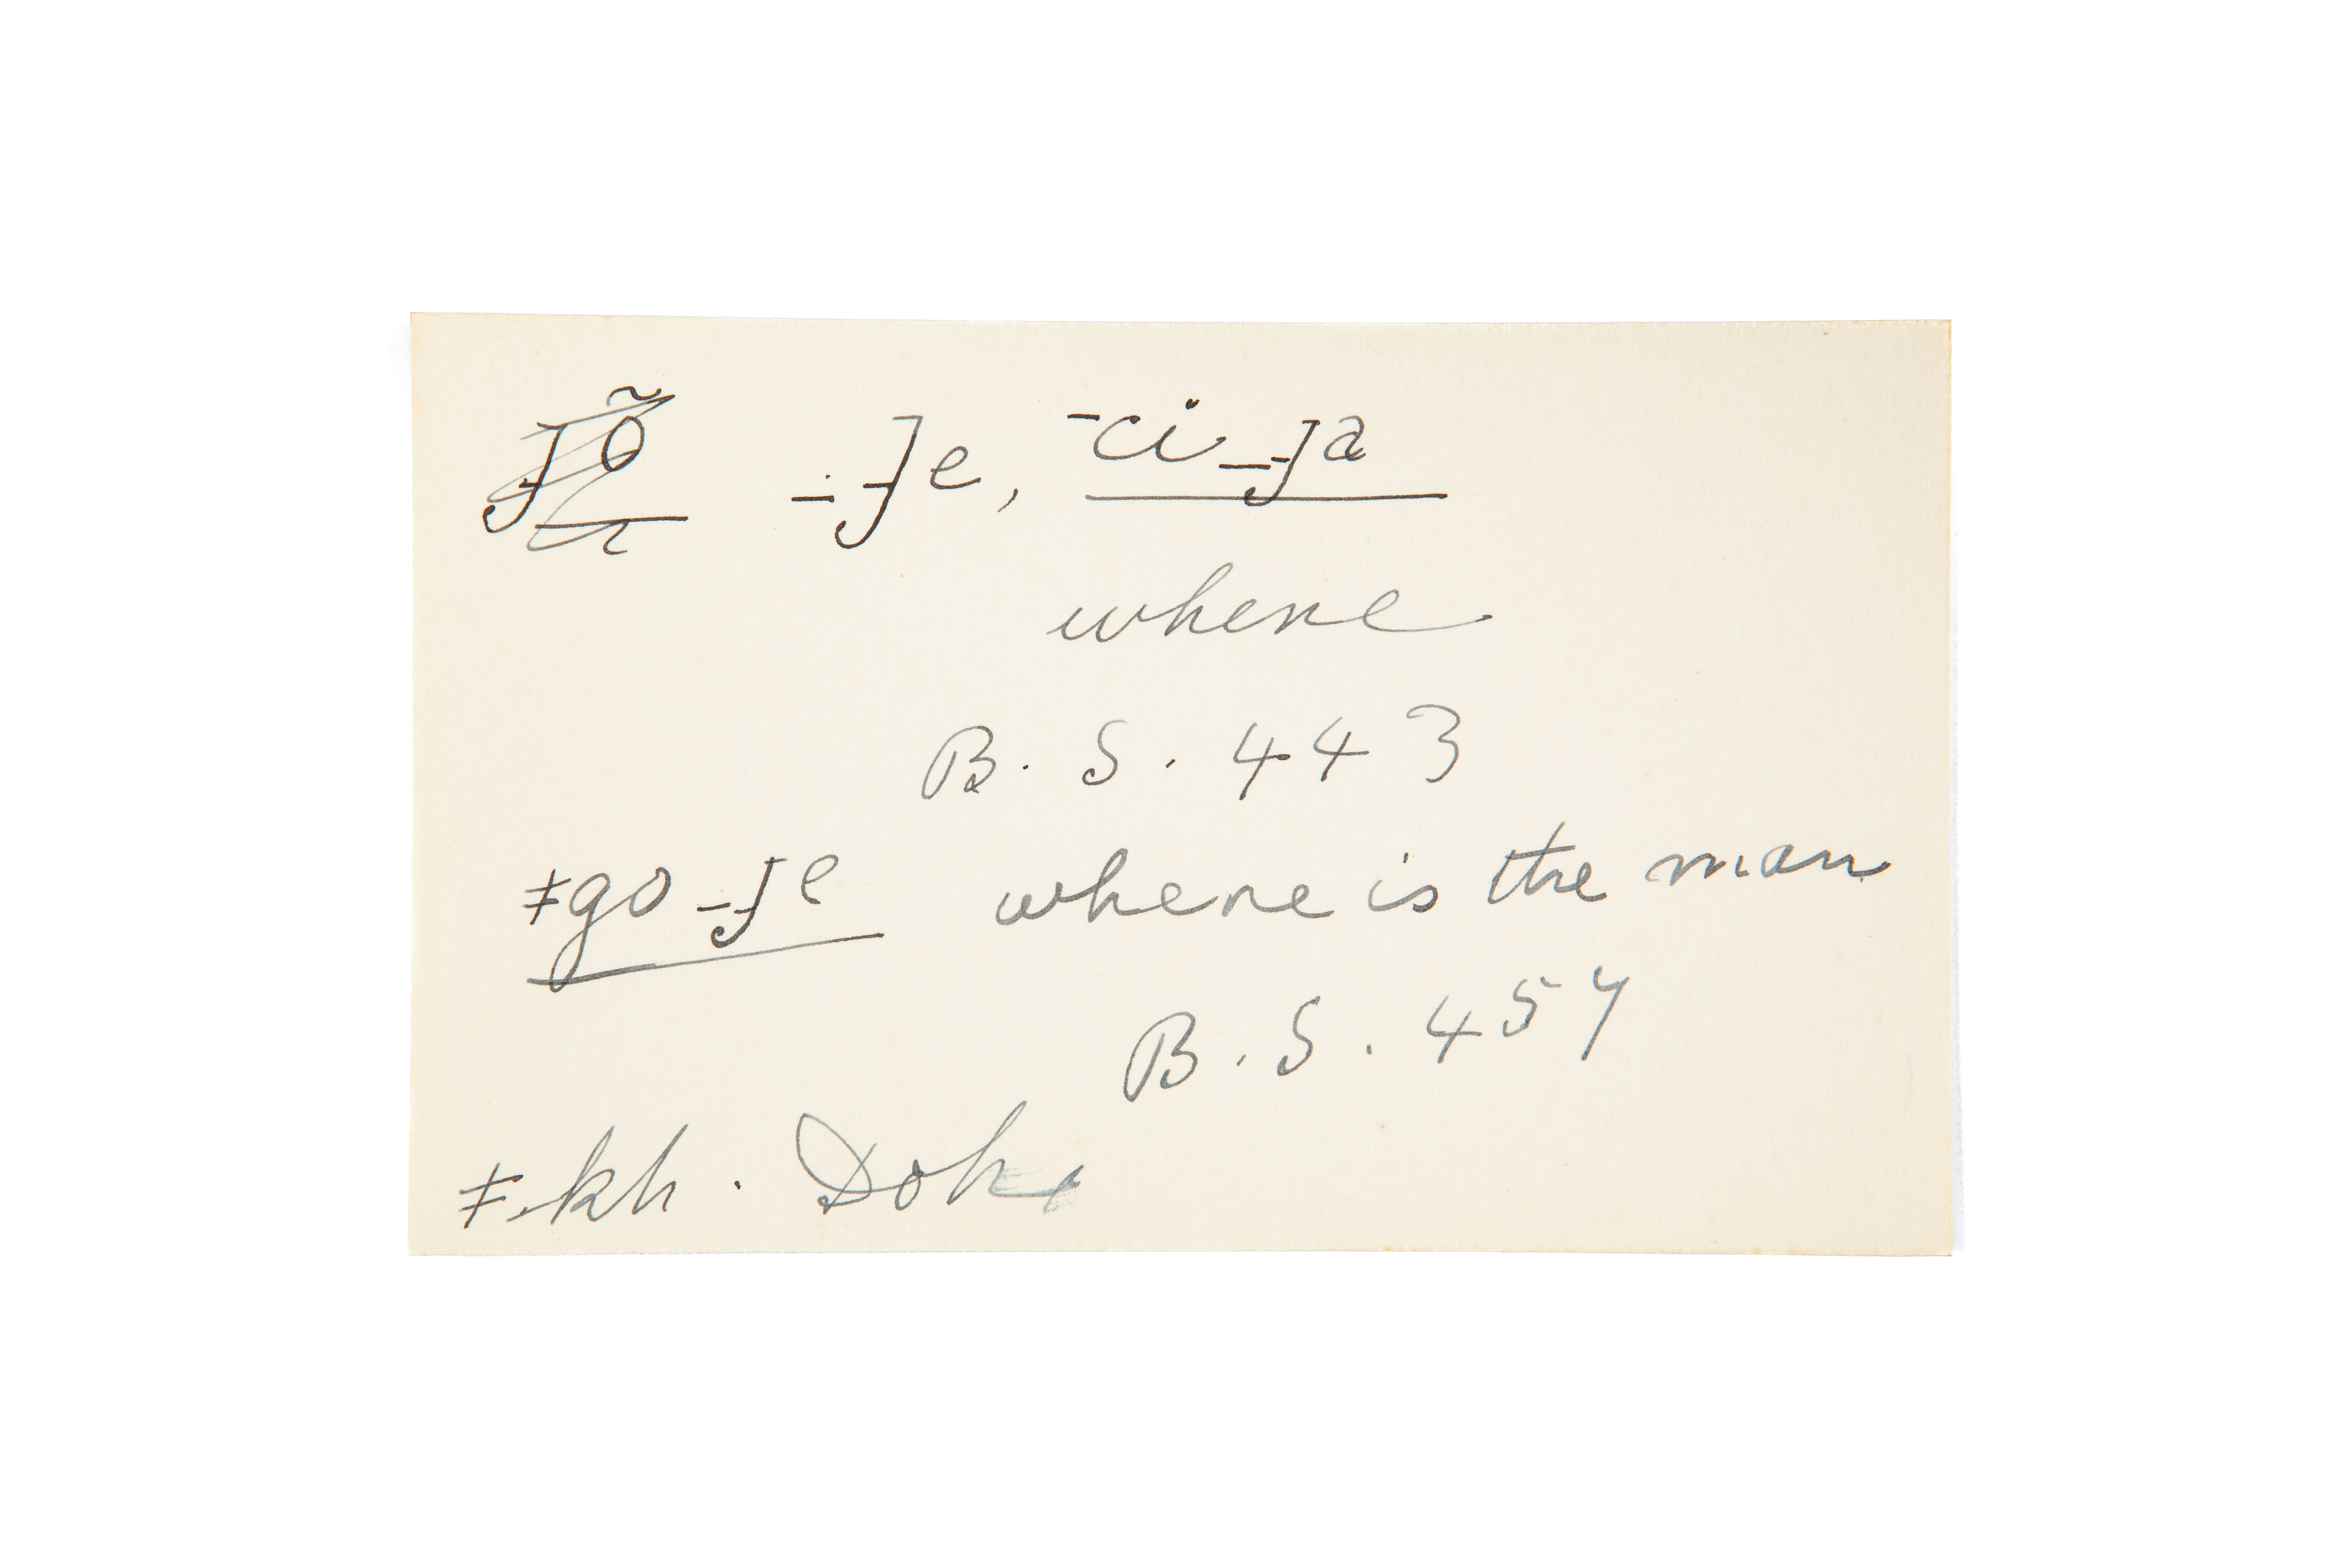 _ɟe, ¯ci_ɟa
where
B. S. 443
ǂgo_ɟe where is the man
B. S. 457
ǂkh. Doke